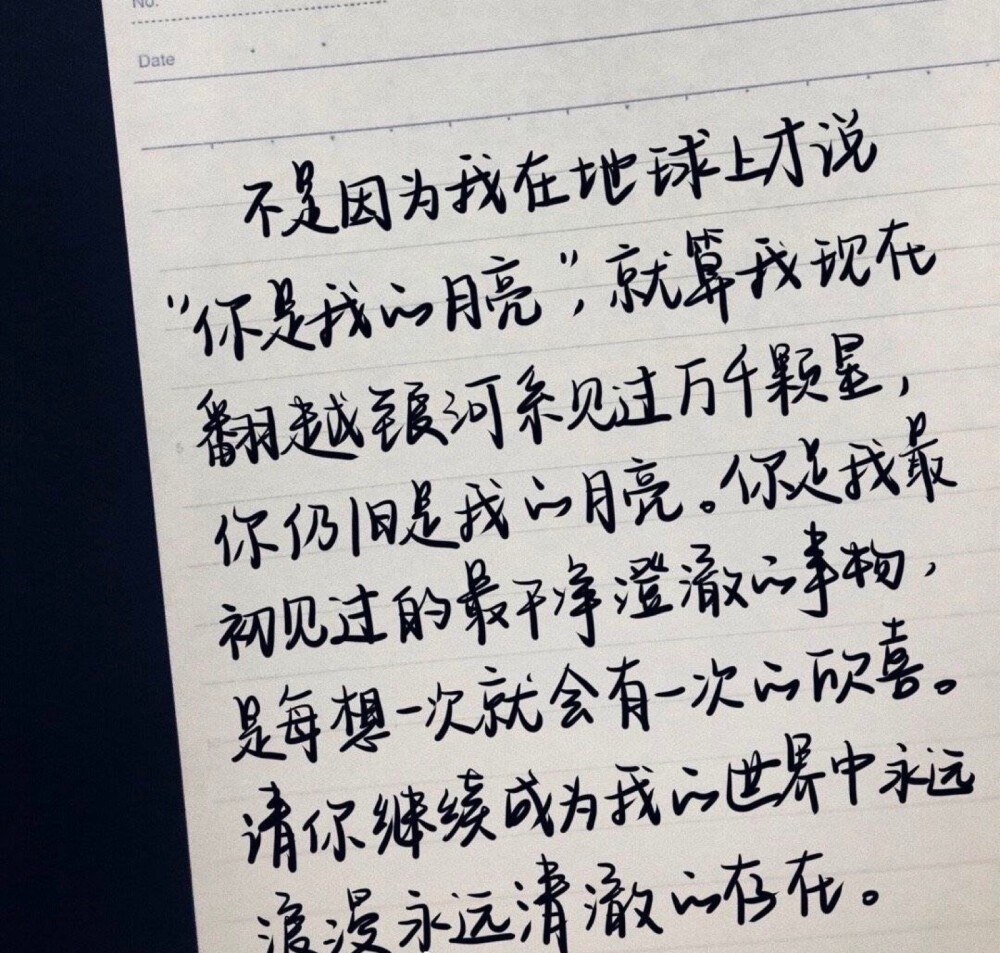 No.
Date
不是因为我在地球上才说
“你是我的月亮”,就算我现在
翻越银河系见过万千颗星,
你仍旧是我的月亮。你是我最
初见过的最干净澄澈的事物,
是每想一次就会有一次的欣喜。
请你继续成为我的世界中永远
浪漫永远清澈的存在。